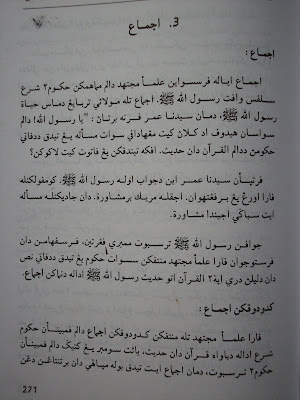 3. اجماع
اجماع :
اجماع اياله فرسسواين علماٴ مجتهد دالم مماهمكن حكوم٢ شرع
سلفس وافت رسول الله ﷺ. اجماع تله مولائي تربايݢ دماس حياة
رسول الله ﷺ، دمان سيدنا عمر فرنه برتاڽ : "يا رسول الله! دالم
سواسان هيدوف اد كلان كيت مڠهادافي سوات مسأله يڠ تيدق ددفاتي
حكومڽ ددالم القرآن دان حديث. افكه تيندقكن يڠ فاتوت كيت لاكوكن؟
فرتڽاٴن سيدنا عمر اين دجواب اوله رسول الله ﷺ. كومفولكنله
فارا اورڠ يڠ برفڠتهوان. اجقله مريك برمشاورة. دان جاديكنله مسأله
ايت سباݢي اجيندا مشاورة.
جوافن رسول الله ﷺ ترسبوت ممبري فڠرتين، فرسفهامن دان
فرستوجوان فارا علماٴ مجتهد منتفكن سسوات حكوم يڠ تيدق ددفاتي نص
دان دليلڽ دري اية٢ القرآن اتو حديث رسول الله ﷺ اداله دنماكن اجماع.
كدودوقكن اجماع :
فارا علماٴ مجتهد تله منتفكن كدودوقكن اجماع دالم فمبيناٴن حكوم
شرع اداله دباواه قرآن دان حديث، يائت سومبر يڠ كتيݢ دالم فمبيناٴن
حكوم٢ ترسبوت، دمان اجماع ايت تيدق بوله مپالهي دان برتنتاڠن دڠن
271